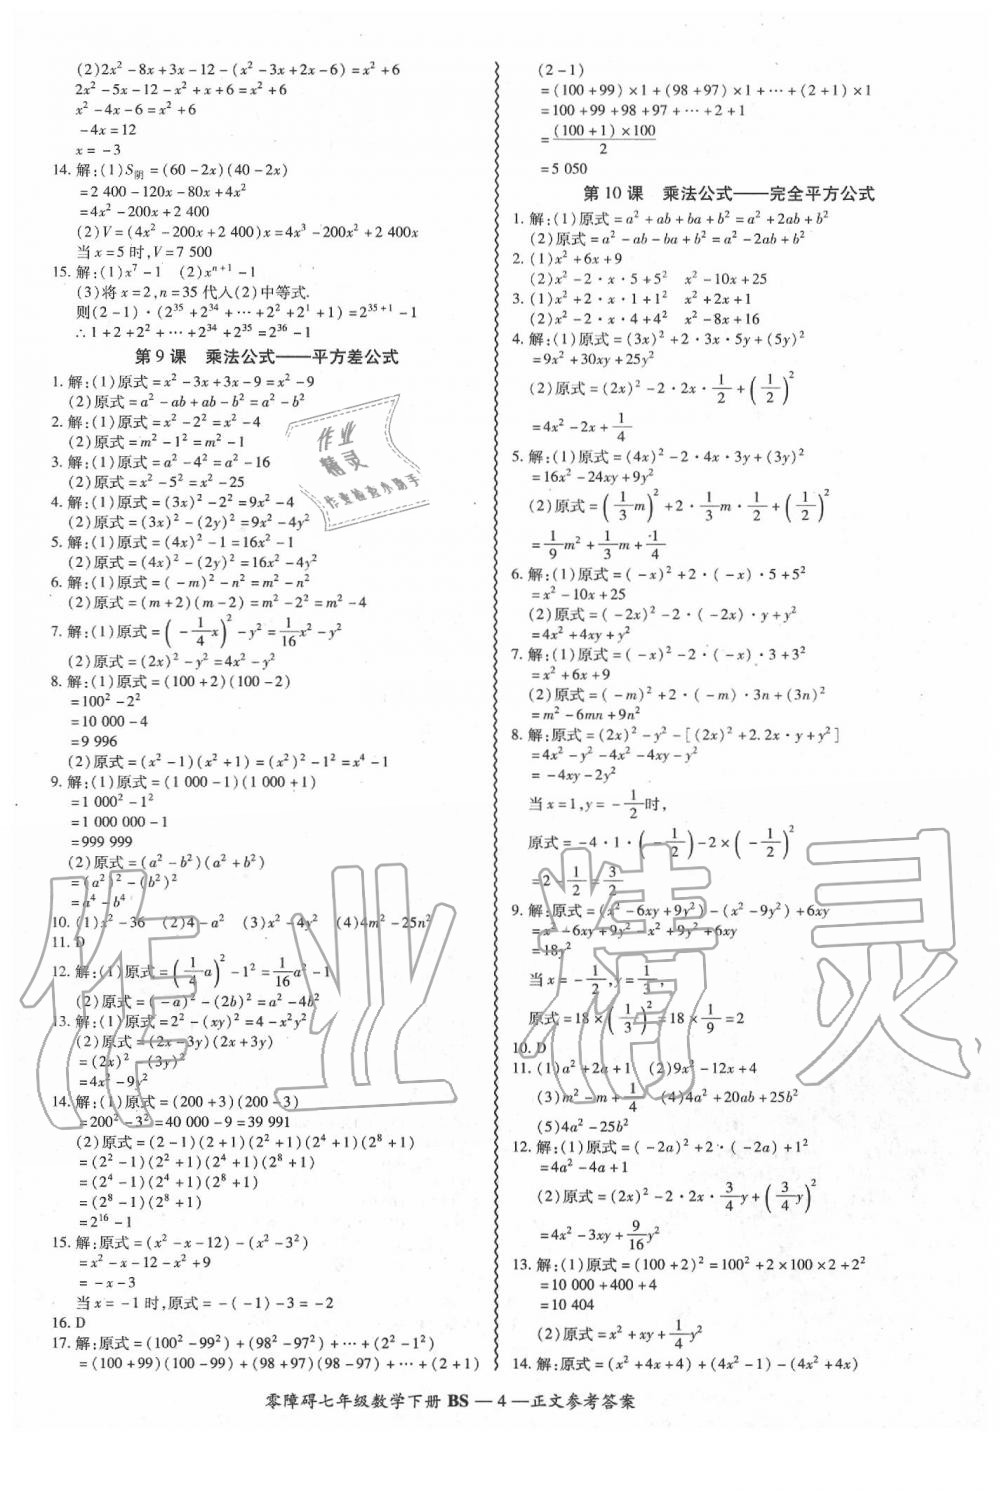 (2)2x²-8x+3x-12-(x²-3x+2x-6)=x²+6
2x²-5x-12-x²+x+6=x²+6
x²-4x-6=x²+6
-4x=12
x=-3
14. 解:(1)S阴=(60-2x)(40-2x)
=2 400-120x-80x+4x²
=4x²-200x+2 400
(2)V=(4x²-200x+2 400)x=4x³-200x²+2 400x
当x=5时,V=7 500
15. 解:(1)x⁷-1 (2)xⁿ⁺¹-1
(3)将x=2,n=35代人(2)中等式.
则(2-1)·(2³⁵+2³⁴+…+2²+2¹+1)=2³⁵⁺¹-1
∴1+2+2²+…+2³⁴+2³⁵=2³⁶-1
第9课 乘法公式——平方差公式
1. 解:(1)原式=x²-3x+3x-9=x²-9
(2)原式=a²-ab+ab-b²=a²-b²
2. 解:(1)原式=x²-2²=x²-4
(2)原式=m²-1²=m²-1
3. 解:(1)原式=a²-4²=a²-16
(2)原式=x²-5²=x²-25
4. 解:(1)原式=(3x)²-2²=9x²-4
(2)原式=(3x)²-(2y)²=9x²-4y²
5. 解:(1)原式=(4x)²-1=16x²-1
(2)原式=(4x)²-(2y)²=16x²-4y²
6. 解:(1)原式=(-m)²-n²=m²-n²
(2)原式=(m+2)(m-2)=m²-2²=m²-4
7. 解:(1)原式=(-1/4x)²-y²=1/16x²-y²
(2)原式=(2x)²-y²=4x²-y²
8. 解:(1)原式=(100+2)(100-2)
=100²-2²
=10 000-4
=9 996
(2)原式=(x²-1)(x²+1)=(x²)²-1²=x⁴-1
9. 解:(1)原式=(1 000-1)(1 000+1)
=1 000²-1²
=1 000 000-1
=999 999
(2)原式=(a²-b²)(a²+b²)
=(a²)²-(b²)²
=a⁴-b⁴
10. (1)x²-36 (2)4-a² (3)x²-4y² (4)4m²-25n²
11. D
12. 解:(1)原式=(1/4a)²-1²=1/16a²-1
(2)原式=(-a)²-(2b)²=a²-4b²
13. 解:(1)原式=2²-(xy)²=4-x²y²
(2)原式=(2x-3y)(2x+3y)
=(2x)²-(3y)²
=4x²-9y²
14. 解:(1)原式=(200+3)(200-3)
=200²-3²=40 000-9=39 991
(2)原式=(2-1)(2+1)(2²+1)(2⁴+1)(2⁸+1)
=(2²-1)(2²+1)(2⁴+1)(2⁸+1)
=(2⁴-1)(2⁴+1)(2⁸+1)
=(2⁸-1)(2⁸+1)
=2¹⁶-1
15. 解:原式=(x²-x-12)-(x²-3²)
=x²-x-12-x²+9
=-x-3
当x=-1时,原式=-(-1)-3=-2
16. D
17. 解:原式=(100²-99²)+(98²-97²)+…+(2²-1²)
=(100+99)(100-99)+(98+97)(98-97)+…+(2+1)
(2-1)
=(100+99)×1+(98+97)×1+…+(2+1)×1
=100+99+98+97+…+2+1
=(100+1)×100/2
=5 050
第10课 乘法公式——完全平方公式
1. 解:(1)原式=a²+ab+ba+b²=a²+2ab+b²
(2)原式=a²-ab-ba+b²=a²-2ab+b²
2. (1)x²+6x+9
(2)x²-2·x·5+5² x²-10x+25
3. (1)x²+2·x·1+1² x²+2x+1
(2)x²-2·x·4+4² x²-8x+16
4. 解:(1)原式=(3x)²+2·3x·5y+(5y)²
=9x²+30xy+25y²
(2)原式=(2x)²-2·2x·1/2+(1/2)²
=4x²-2x+1/4
5. 解:(1)原式=(4x)²-2·4x·3y+(3y)²
=16x²-24xy+9y²
(2)原式=(1/3m)²+2·1/3m·1/2+(1/2)²
=1/9m²+1/3m+1/4
6. 解:(1)原式=(-x)²+2·(-x)·5+5²
=x²-10x+25
(2)原式=(-2x)²-2·(-2x)·y+y²
=4x²+4xy+y²
7. 解:(1)原式=(-x)²-2·(-x)·3+3²
=x²+6x+9
(2)原式=(-m)²+2·(-m)·3n+(3n)²
=m²-6mn+9n²
8. 解:原式=(2x)²-y²-[(2x)²+2.2x·y+y²]
=4x²-y²-4x²-4xy-y²
=-4xy-2y²
当x=1,y=-1/2时,
原式=-4·1·(-1/2)-2×(-1/2)²
=2-1/2=3/2
9. 解:原式=(x²-6xy+9y²)-(x²-9y²)+6xy
=x²-6xy+9y²-x²+9y²+6xy
=18y²
当x=-1/2,y=1/3,
原式=18×(1/3)²=18×1/9=2
10. D
11. (1)a²+2a+1 (2)9x²-12x+4
(3)m²-m+1/4 (4)4a²+20ab+25b²
(5)4a²-25b²
12. 解:(1)原式=(-2a)²+2·(-2a)+1²
=4a²-4a+1
(2)原式=(2x)²-2·2x·3/4y+(3/4y)²
=4x²-3xy+9/16y²
13. 解:(1)原式=(100+2)²=100²+2×100×2+2²
=10 000+400+4
=10 404
(2)原式=x²+xy+1/4y²
14. 解:原式=(x²+4x+4)+(4x²-1)-(4x²+4x)
零障碍七年级数学下册 BS — 4 —正文参考答案
作业
精灵
作业检查小助手
作业精灵